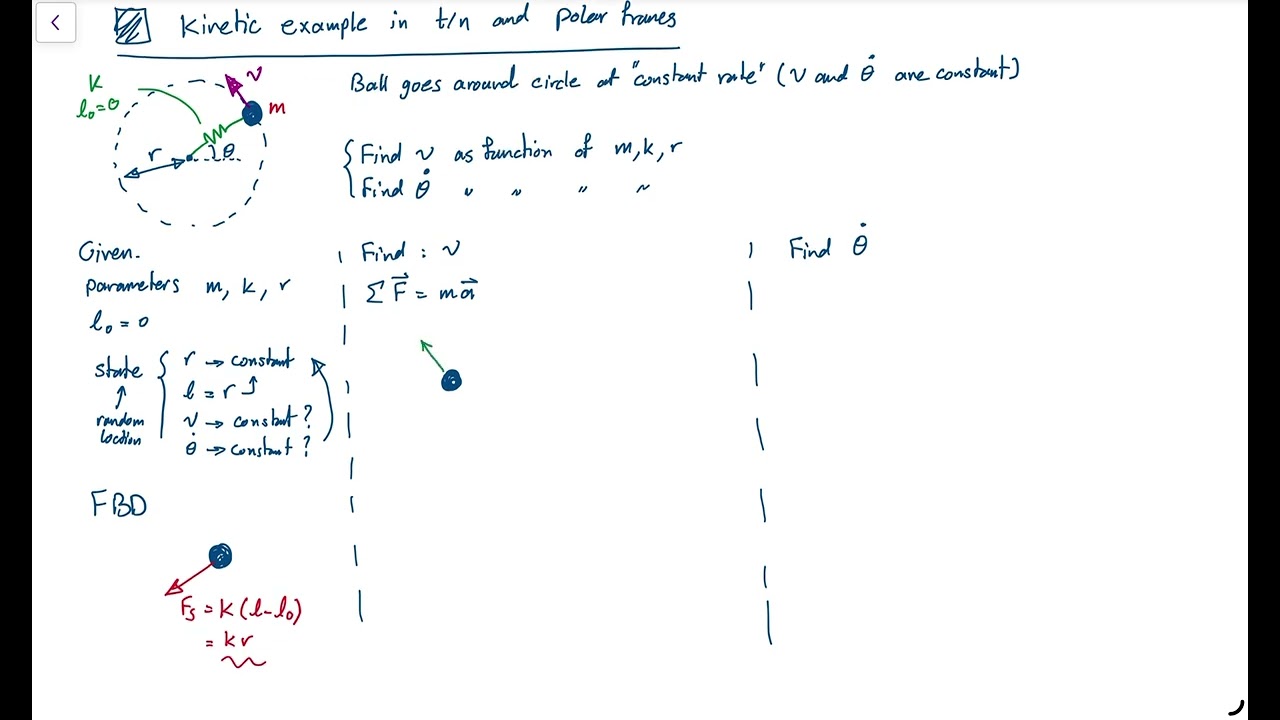 Kinetic example in t/n and polar frames
Ball goes around circle at "constant rate" (v and θ̇ are constant)
k
l₀=0
v
m
r
θ
Find v as function of m, k, r
Find θ̇ " " " "
Given.
parameters m, k, r
l₀ = 0
state
↑
random
location
r → constant
l = r
v → constant?
θ̇ → constant?
FBD
Fs = k(l-l₀)
= kr
Find : v
Σ F⃗ = ma⃗
Find θ̇